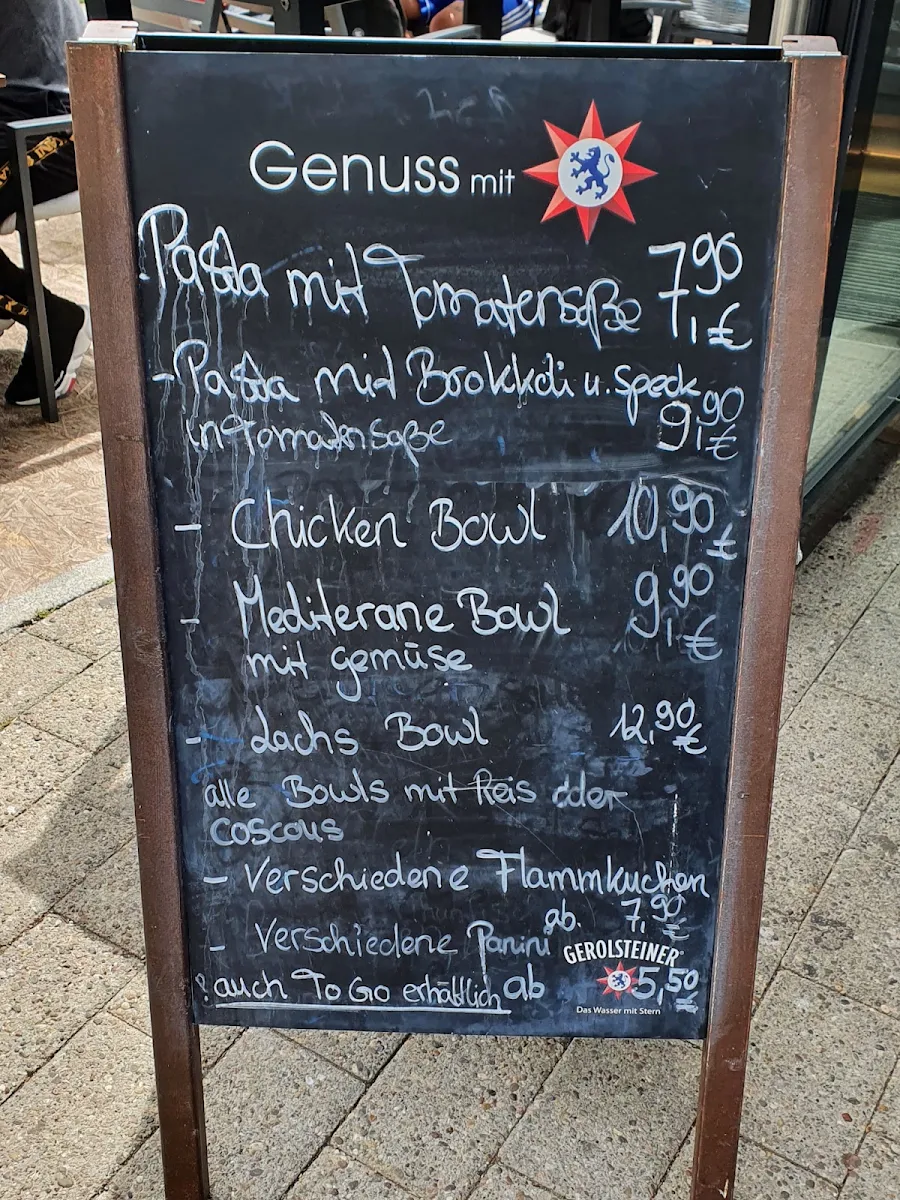 Genuss mit
- Pasta mit Tomatensoße 7,90 €
- Pasta mit Brokkoli u. Speck
in Tomatensoße 9,90 €
- Chicken Bowl 10,90 €
- Mediterane Bowl 9,90 €
mit gemüse
- Lachs Bowl 12,90 €
alle Bowls mit Reis oder
coscous
- Verschiedene Flammkuchen
ab. 7,90 €
- Verschiedene Panini
GEROLSTEINER
auch To Go erhältlich ab 5,50 €
Das Wasser mit Stern